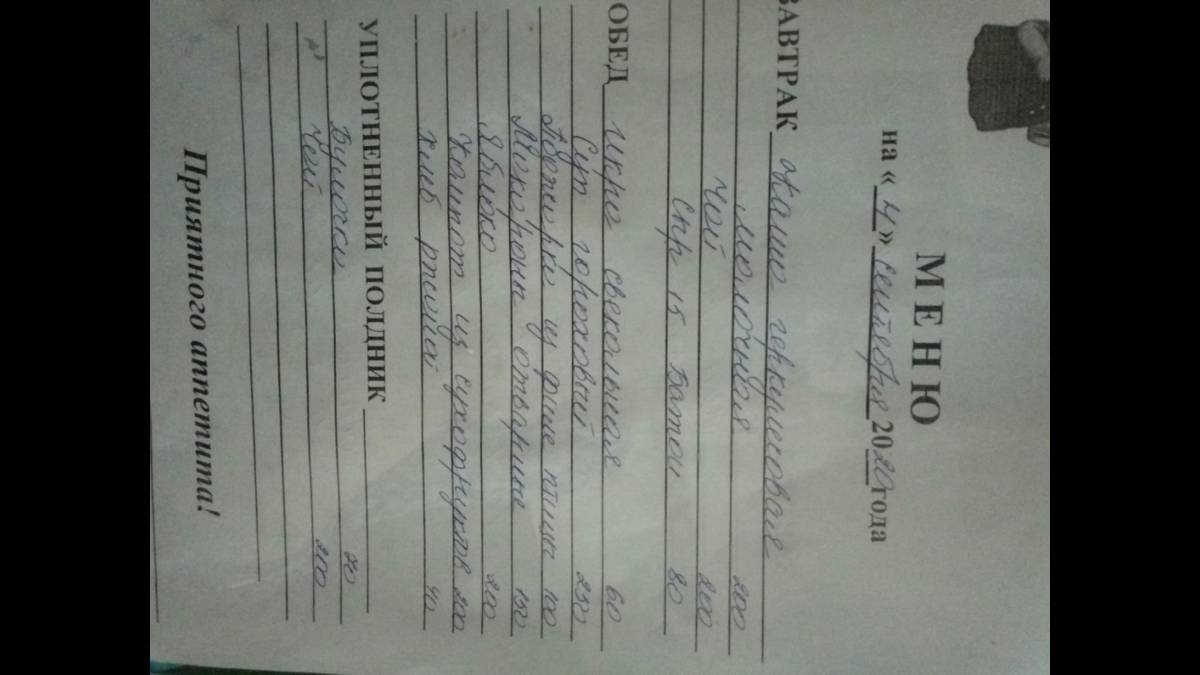 МЕНЮ
на « 4 » сентября 2020 года
ЗАВТРАК Каша геркулесовая
молочная 200
Чай 200
сыр 15 Батон 80
ОБЕД Икра свекольная 60
Суп гороховый 250
из филе птицы 100
Макароны отварные 150
Яблоко 200
Компот из сухофруктов 200
Хлеб ржаной 40
УПЛОТНЕННЫЙ ПОЛДНИК
Булочки 70
Чай 200
Приятного аппетита!